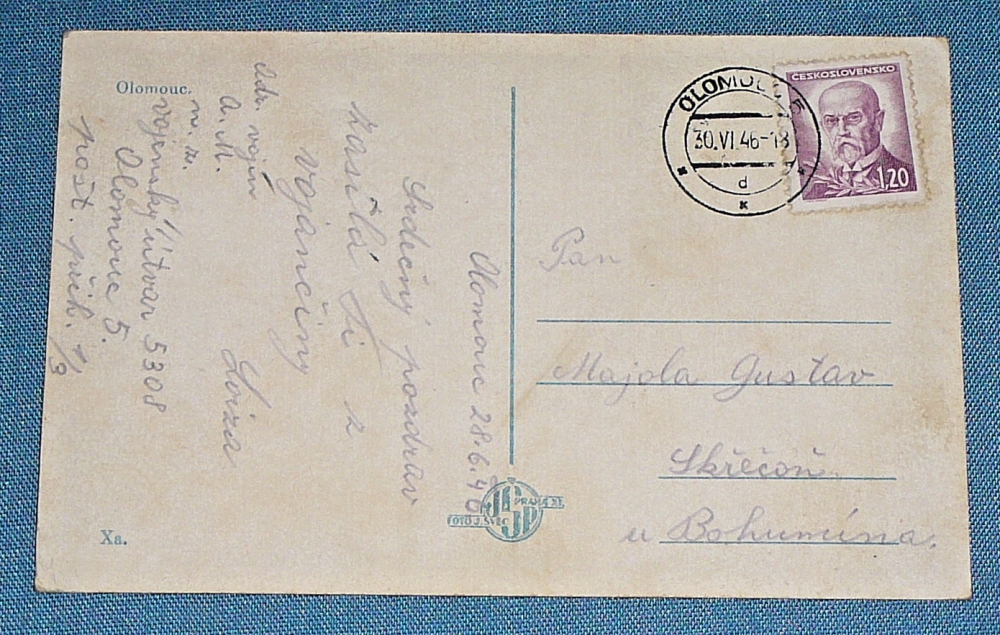 Olomouc.
Olomouc 28.6.46
Srdečný pozdrav
zasílá Ti z
vojančiny
Lojza
Adr. vojín
A. M.
n. z.
Vojenský útvar 5308
Olomouc 5.
pošt. přihr. 1/3
Xa.
FOTO J. ŠVEC
PRAHA XI.
OLOMOUC 5
30.VI.46-18
d
ČESKOSLOVENSKO
1,20
Pan
Majola Gustav
Skřečoň
u Bohumína.